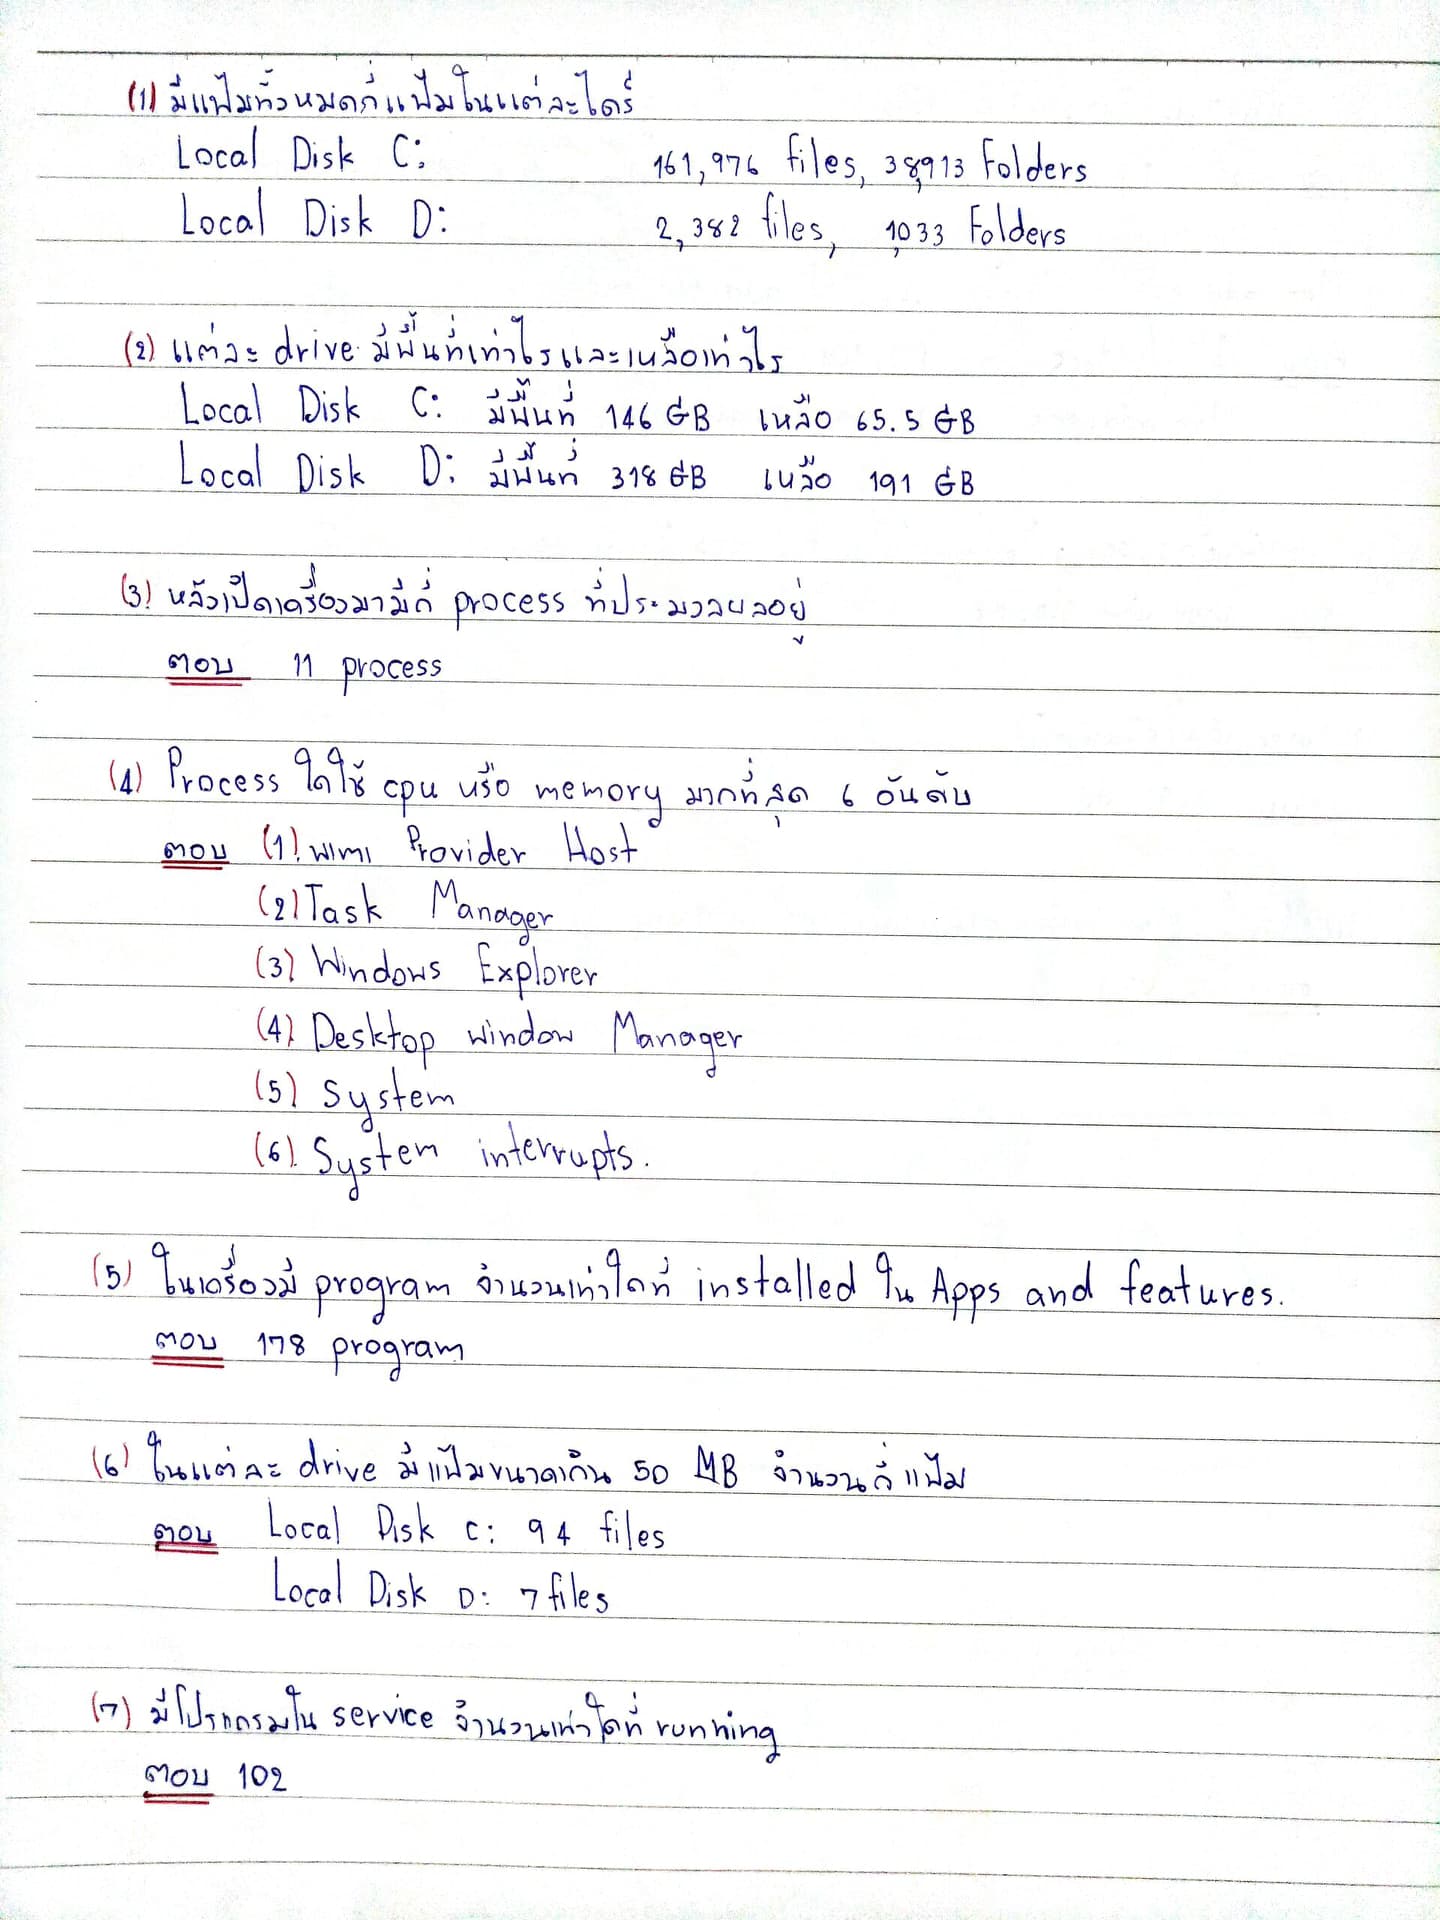 (1) มีแฟ้มทั้งหมดกี่แฟ้มในแต่ละไดร์
Local Disk C: 161,976 files, 38,913 Folders
Local Disk D: 2,382 files, 1,033 Folders
(2) แต่ละ drive มีพื้นที่เท่าไรและเหลือเท่าไร
Local Disk C: มีพื้นที่ 146 GB เหลือ 65.5 GB
Local Disk D: มีพื้นที่ 318 GB เหลือ 191 GB
(3) หลังเปิดเครื่องมามีกี่ process ที่ประมวลผลอยู่
ตอบ 11 process
(4) Process ใดใช้ cpu หรือ memory มากที่สุด 6 อันดับ
ตอบ (1) WMI Provider Host
(2) Task Manager
(3) Windows Explorer
(4) Desktop window Manager
(5) System
(6) System interrupts.
(5) ในเครื่องมี program จำนวนเท่าใดที่ installed ใน Apps and features.
ตอบ 178 program
(6) ในแต่ละ drive มีแฟ้มขนาดเกิน 50 MB จำนวนกี่แฟ้ม
ตอบ Local Disk C: 94 files
Local Disk D: 7 files
(7) มีโปรแกรมใน service จำนวนเท่าใดที่ running
ตอบ 102